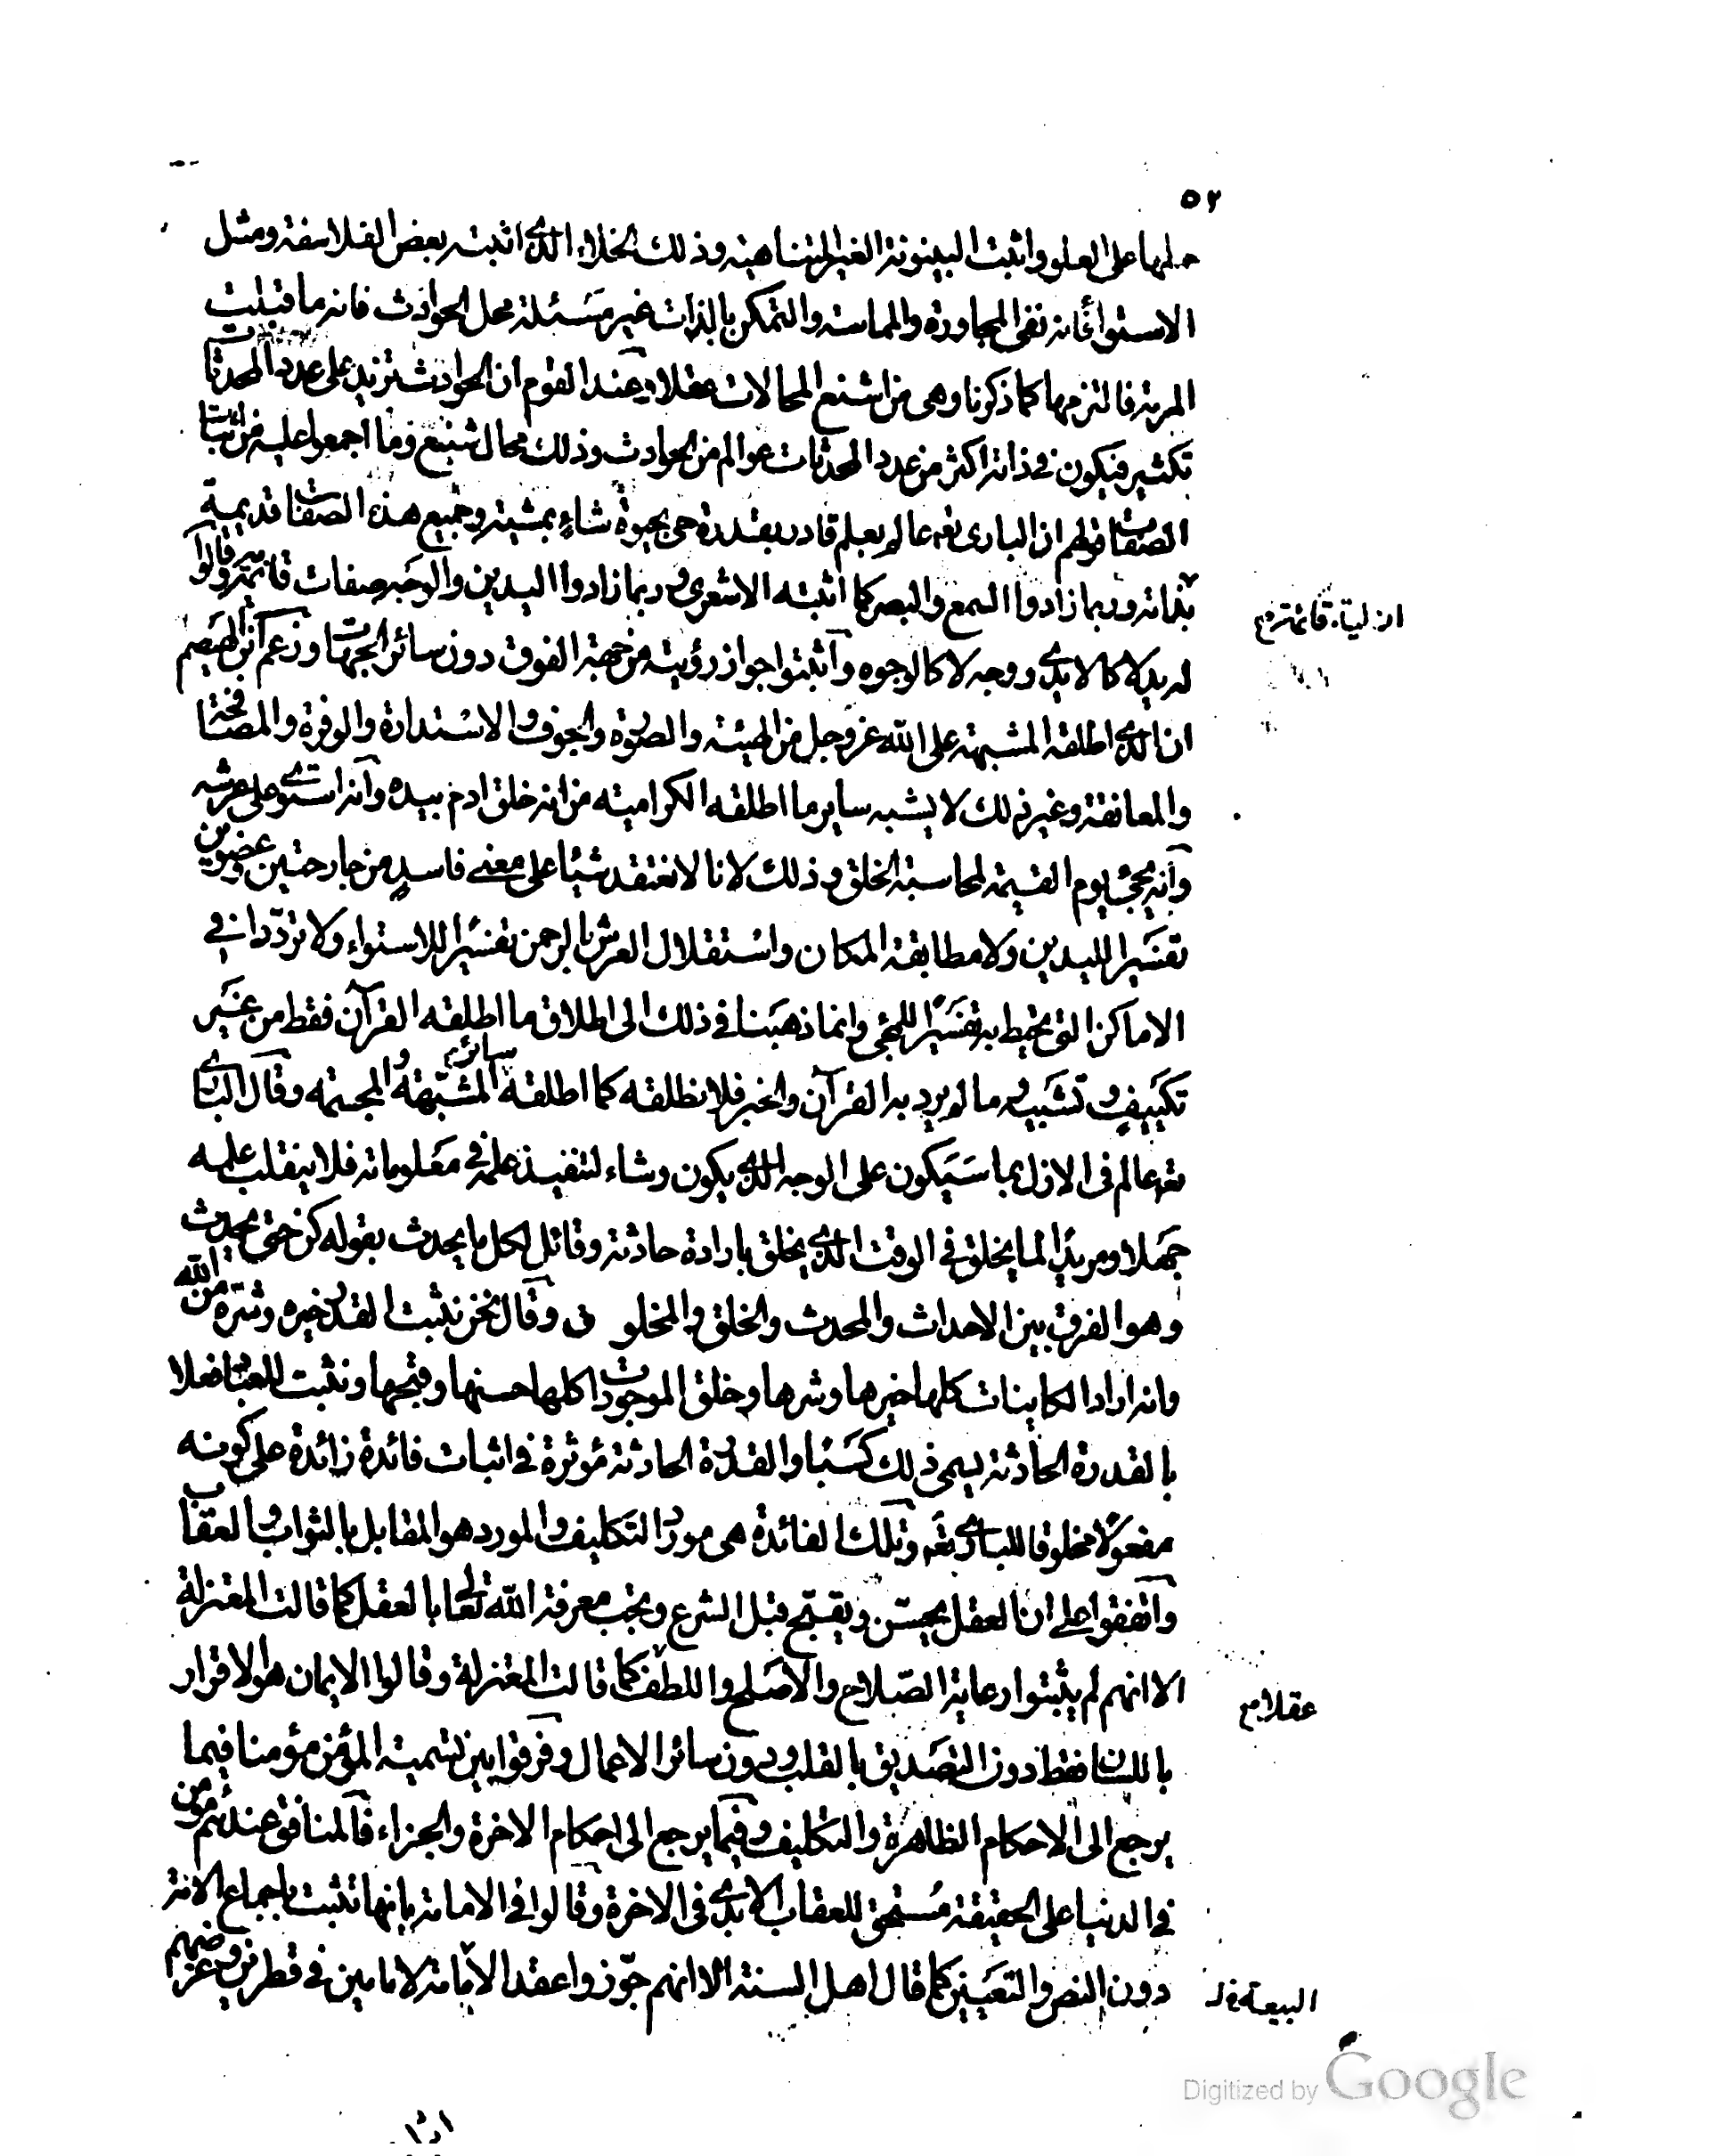 ٥٢
حملها على العلو واثبت البينونة الغير المتناهية وذلك الخلاء الذى اثبته بعض الفلاسفة ومثل
الاستواء فانه نفى المجاورة والمماسة والتمكن بالذات غير مسئلة محل الحوادث فانه ما قبلت
المرمة فالتزمها كما ذكرنا وهى من اشنع المحالات عقلا وعند القوم ان الحوادث تزيد على عدد المحدثات
بكثير فيكون فى ذاته اكثر من عدد المحدثات عوالم من الحوادث وذلك محال شنيع ومما اجمعوا عليه من اثبات
الصفات قولهم ان البارى تعه عالم بعلم قادر بقدرة حى بحيوة شاء بمشية وجميع هذه الصفات قديمية
بذاته وربما زادوا السمع والبصر كما اثبته الاشعرى وربما زادوا اليدين والوجه صفات قائمة به وقالوا
له يد لا كالايدى ووجه لا كالوجوه وآثبتوا جواز رؤيته من جهة الفوق دون سائر الجهات وزعم ابن الهيصم
ان الذى اطلقه المشبهة على الله عز وجل من الهيئة والصورة والجوف والاستدارة والوفرة والمصافحة
والمعانقة وغير ذلك لا يشبه ساير ما اطلقه الكرامية من انه خلق ادم بيده وآنه استوى على عرشه
وآنه يجئ يوم القيمة لمحاسبة الخلق وذلك لانا لا نعتقد شيئا على معنى فاسد من جارحتين وعضوين
تفسيرا لليدين ولا مطابقة المكان واستقلال العرش بالرحمن تفسيرا للاستواء ولا ترددا فى
الاماكن التى تحيط به تفسيرا للمجئ وانما ذهبنا فى ذلك الى اطلاق ما اطلقه القرآن فقط من غير
تكييف وتشبيه وما لم يرد به القرآن والخبر فلا نطلقه كما اطلقه سائر المشبهة والمجسمة وقال البارى
تعه عالم فى الازل بما سيكون على الوجه الذى يكون وشاء لتنفيذ علمه فى معلوماته فلا ينقلب علمه
جهلا ومريدا لما يخلق فى الوقت الذى يخلق بارادة حادثة وقائل لكل ما يحدث بقوله كن حتى يحدث
وهو الفرق بين الاحداث والمحدث والخلق والمخلوق وقال نحن نثبت القدر خيره وشره من الله
وانه اراد الكاينات كلها خيرها وشرها وخلق الموجودات كلها حسنها وقبحها ونثبت للعبد فعلا
بالقدرة الحادثة يسمى ذلك كسبا والقدرة الحادثة مؤثرة فى اثبات فائدة زائدة على كونه
مفعولا مخلوقا للبارى تعه وتلك الفائدة هى مورد التكليف والمورد هو المقابل بالثواب والعقاب
وآتفقوا على ان العقل يحسن ويقبح قبل الشرع ويجب معرفة الله تعالى بالعقل كما قالت المعتزلة
الا انهم لم يثبتوا رعاية الصلاح والاصلح واللطف كما قالت المعتزلة وقالوا الايمان هو الاقرار
باللسان فقط دون التصديق بالقلب ودون سائر الاعمال وفرقوا بين تسمية المؤمن مؤمنا فيما
يرجع الى الاحكام الظاهرة والتكليف وفيما يرجع الى احكام الاخرة والجزاء فآلمنافق عندهم مؤمن
فى الدنيا على الحقيقة مستحق للعقاب الابدى فى الاخرة وقالوا فى الامامة بانها تثبت باجماع الامة
دون النص والتعيين كما قال اهل السنة الا انهم جوزوا عقد الامامة لامامين فى قطرين وغرضهم
ازلية قائمة م
عقلا م
البيعة خ
Digitized by Google